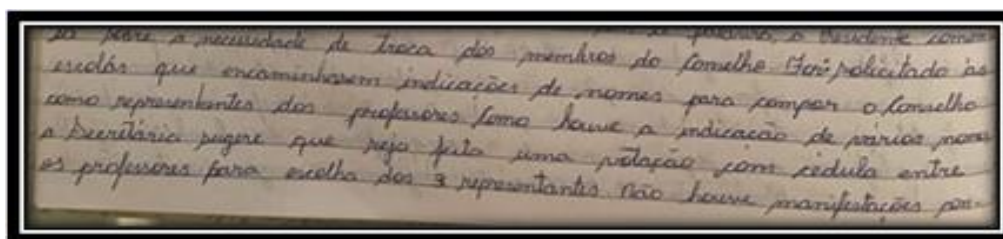 sa sobre a necessidade de troca dos membros do Conselho. Foi solicitado às
escolas que encaminhassem indicações de nomes para compor o Conselho
como representantes dos professores. Como houve a indicação de vários nomes
a Secretária sugere que seja feita uma votação com cédula entre
os professores para escolha dos 3 representantes não houve manifestações con-